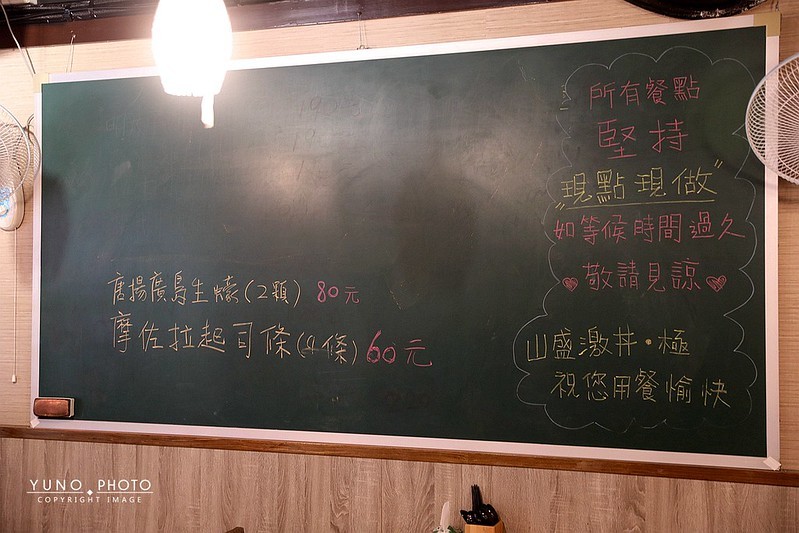 唐揚廣島生蠔(2顆) 80元
摩佐拉起司條(4條) 60元
所有餐點
堅持
"現點現做"
如等候時間過久
♥敬請見諒♥
山盛激丼·極
祝您用餐愉快
YUNO PHOTO
COPYRIGHT IMAGE